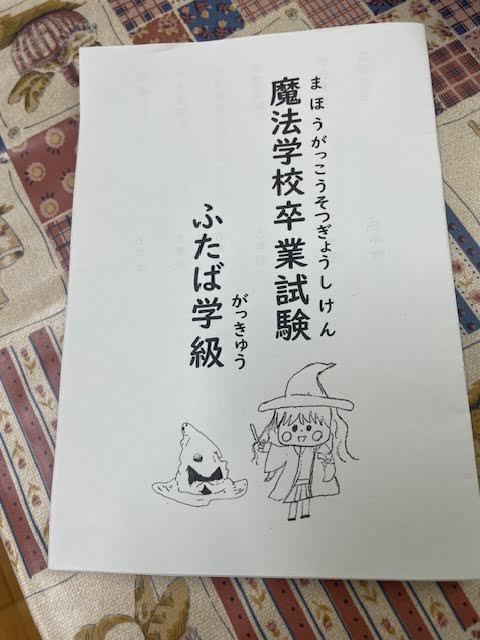 まほうがっこうそつぎょうしけん
魔法学校卒業試験
ふたば学級
がっきゅう